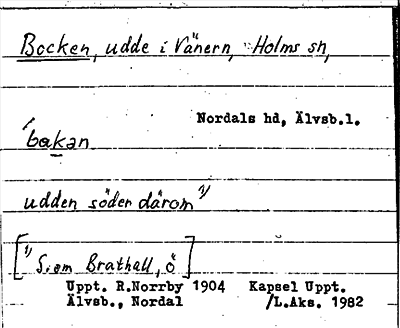 Bocken, udde i Vänern, Holms sn,
Nordals hd, Älvsb.l.
´bakan
udden söder därom 1)
[1) S. om Brathall, ö]
Uppt. R.Norrby 1904 Kapsel Uppt.
Älvsb., Nordal /L.Aks. 1982